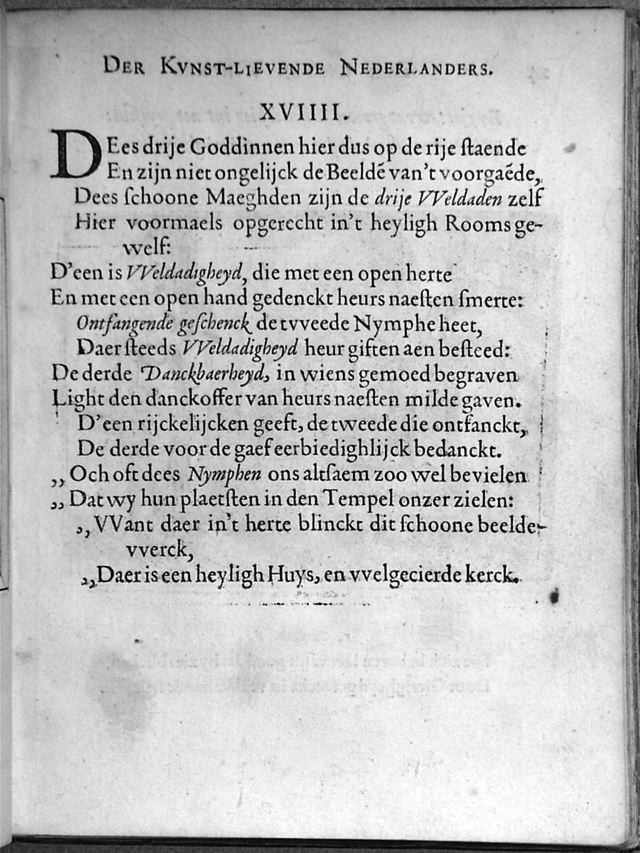 DER KVNST-LIEVENDE NEDERLANDERS.
XVIIII.
DEes drije Goddinnen hier dus op de rije ſtaende
En zijn niet ongelijck de Beeldẽ van't voorgaẽde,
Dees ſchoone Maeghden zijn de drije VVeldaden zelf
Hier voormaels opgerecht in't heyligh Rooms ge-
welf:
D'een is VVeldadigheyd, die met een open herte
En met een open hand gedenckt heurs naeſten ſmerte:
Ontfangende geſchenck de tvveede Nymphe heet,
Daer ſteeds VVeldadigheyd heur giften aen beſteed:
De derde Danckbaerheyd, in wiens gemoed begraven
Light den danckoffer van heurs naeſten milde gaven.
D'een rijckelijcken geeft, de tweede die ontfanckt,
De derde voor de gaef eerbiedighlijck bedanckt.
,, Och oft dees Nymphen ons altſaem zoo wel bevielen
,, Dat wy hun plaetſten in den Tempel onzer zielen:
,, VVant daer in't herte blinckt dit ſchoone beelde-
vverck,
,, Daer is een heyligh Huys, en vvelgecierde kerck.